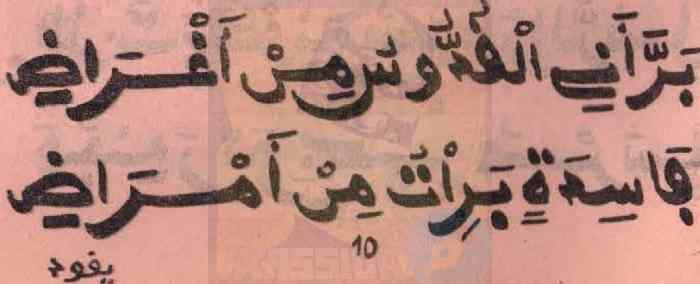 بَرَّأَنِي الْقُدُّوسُ مِنْ أَغْرَاضِ
فَاسِدَةٍ بَرِئْتُ مِنْ أَمْرَاضِ
10
يقود